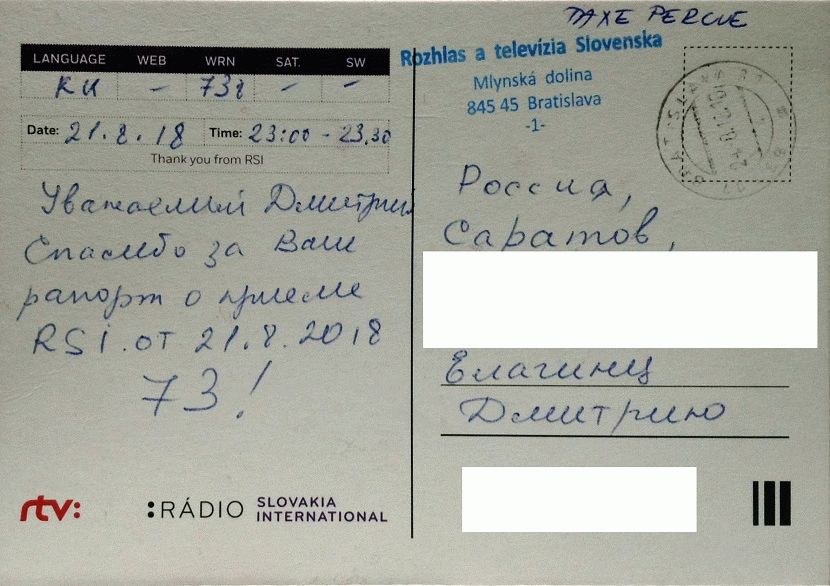 TAXE PERCUE
LANGUAGE WEB WRN SAT. SW
RU - 738 - -
Date: 21.8.18 Time: 23:00 - 23.30
Thank you from RSI
Уважаемый Дмитрий
Спасибо за Ваш
рапорт о приеме
RSI. от 21.8.2018
73!
rtv:
:RÁDIO SLOVAKIA
INTERNATIONAL
Rozhlas a televízia Slovenska
Mlynská dolina
845 45 Bratislava
-1-
Россия,
Саратов,
Елагинц
Дмитрию